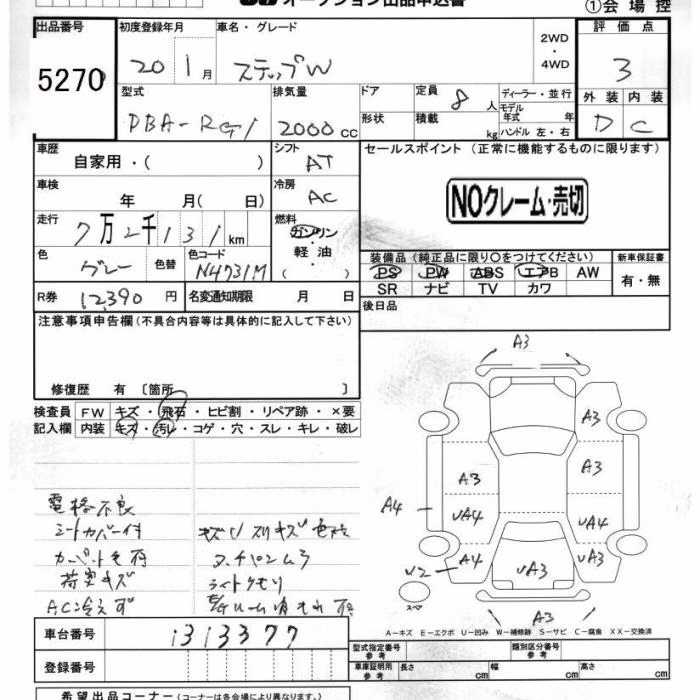 オークション出品申込書
①会場控
出品番号
5270
初度登録年月
20 1月
車名・グレード
ステップW
2WD
・
4WD
評価点
3
外装 内装
D C
型式
DBA-RG1
排気量
2000 cc
ドア
形状
定員 8 人
積載 kg
ディーラー・並行
モデル年式 年
ハンドル 左・右
車歴
自家用・( )
シフト
AT
セールスポイント (正常に機能するものに限ります)
NOクレーム・売切
車検
年 月( 日)
冷房
AC
走行
7万2千131km
燃料
ガソリン
・
軽油
・
( )
色
グレー
色替
色コード
N4731M
装備品 (純正品に限り〇をつけてください)
PS PW ABS エアB AW
SR ナビ TV カワ
新車保証書
有・無
R券 12,390 円
名変通知期限 月 日
後日品
注意事項申告欄 (不具合内容等は具体的に記入して下さい)
修復歴 有 〔箇所 〕
検査員 FW キズ・飛石・ヒビ割・リペア跡・×要
記入欄 内装 キズ・汚レ・コゲ・穴・スレ・キレ・破レ
電格不良
シートカバー付
荷室キズ
AC冷えず
ライトクモリ
A3
A3
A3
A3
A4
UA4
UA4
U2
A4
UA3
UA3
A3
スペア
A-キズ E-エクボ U-凹み W-補修跡 S-サビ C-腐食 XX-交換済
車台番号
1313377
登録番号
型式指定番号
参考
類別区分番号
参考
車庫証明用
参考
長さ cm
幅 cm
高さ cm
希望出品コーナー (コーナーは各会場により異なります。)